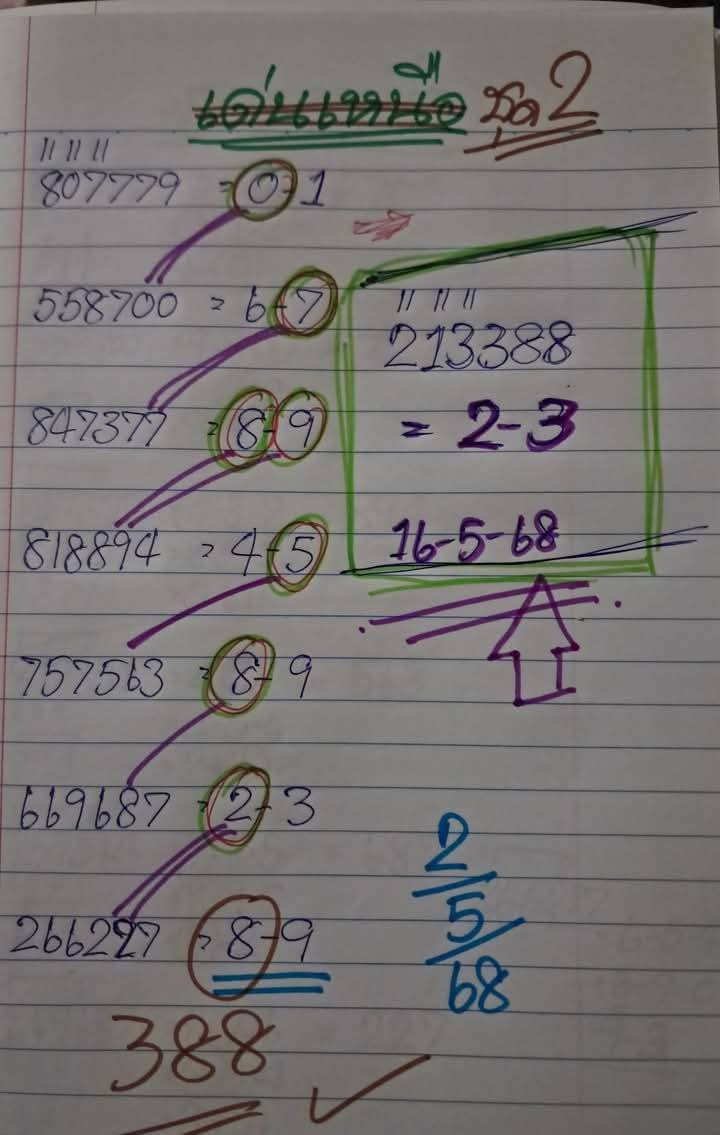 เด่นเหนือ ชุด 2
807779 = 0-1
558700 = 6-7
847377 = 8-9
818894 = 4-5
757563 = 8-9
669687 = 2-3
266227 = 8-9
388
213388
= 2-3
16-5-68
2
5
68